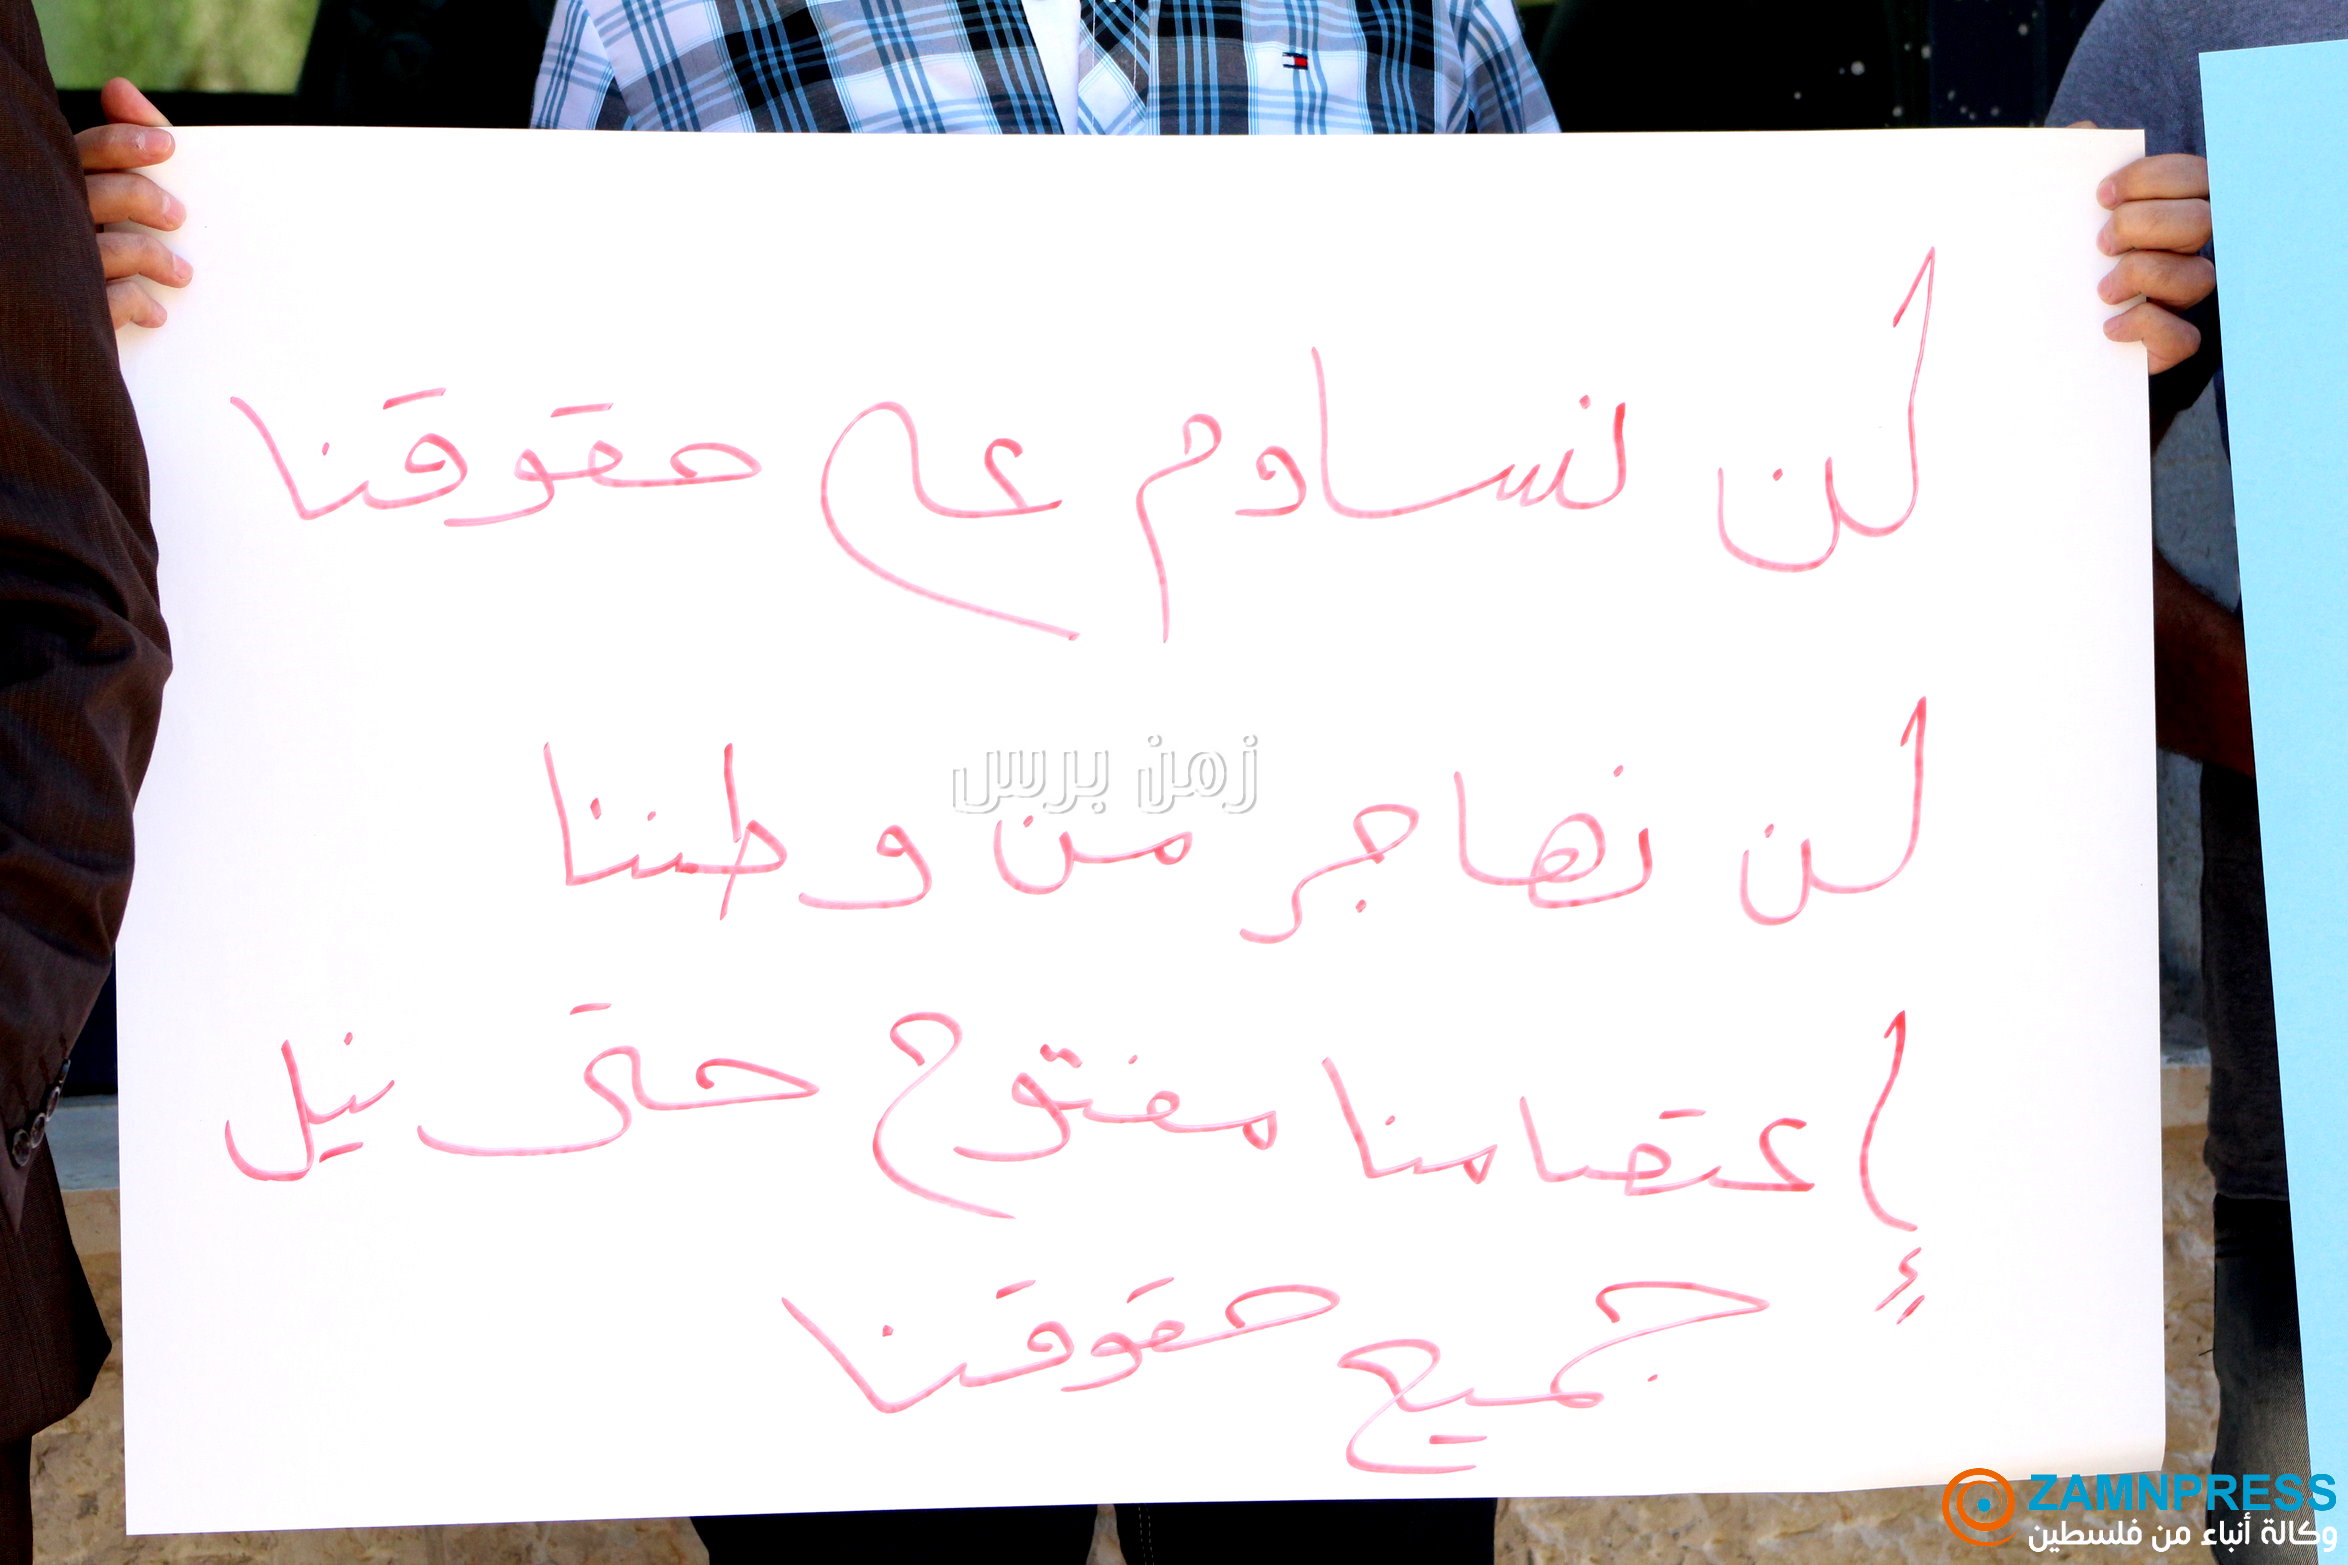 لن نساوم على حقوقنا
زمن برس
لن نهاجر من وطننا
إعتصامنا مفتوح حتى نيل
جميع حقوقنا
ZAMNPRESS
وكالة أنباء من فلسطين